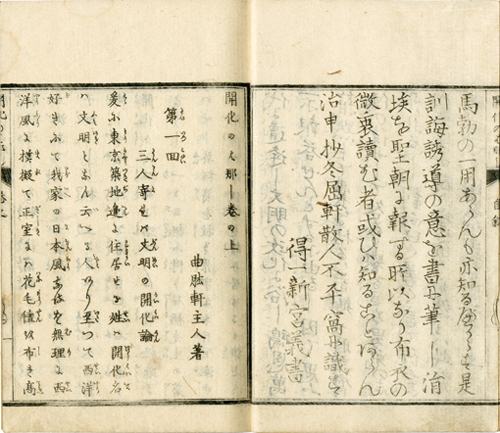 馬勃の一用あらんも亦知るべからず是
訓誨誘導の意を書
涓埃を聖朝に報する所以なり布衣の
微衷讀む者或ひハ知ることあらん
治申抄冬屈軒散人不平窩
得一新宮義書
開化のはなし巻の上
曲肱軒主人著
第一回
三人寄れバ文明の開化論
爰に東京築地邊に住居せる姓ハ開化名
ハ文明となん云へる人あり至つて西洋
好きにて我家の日本風なるを無理に西
洋風に模擬て正室にハ花毛氈を布き高